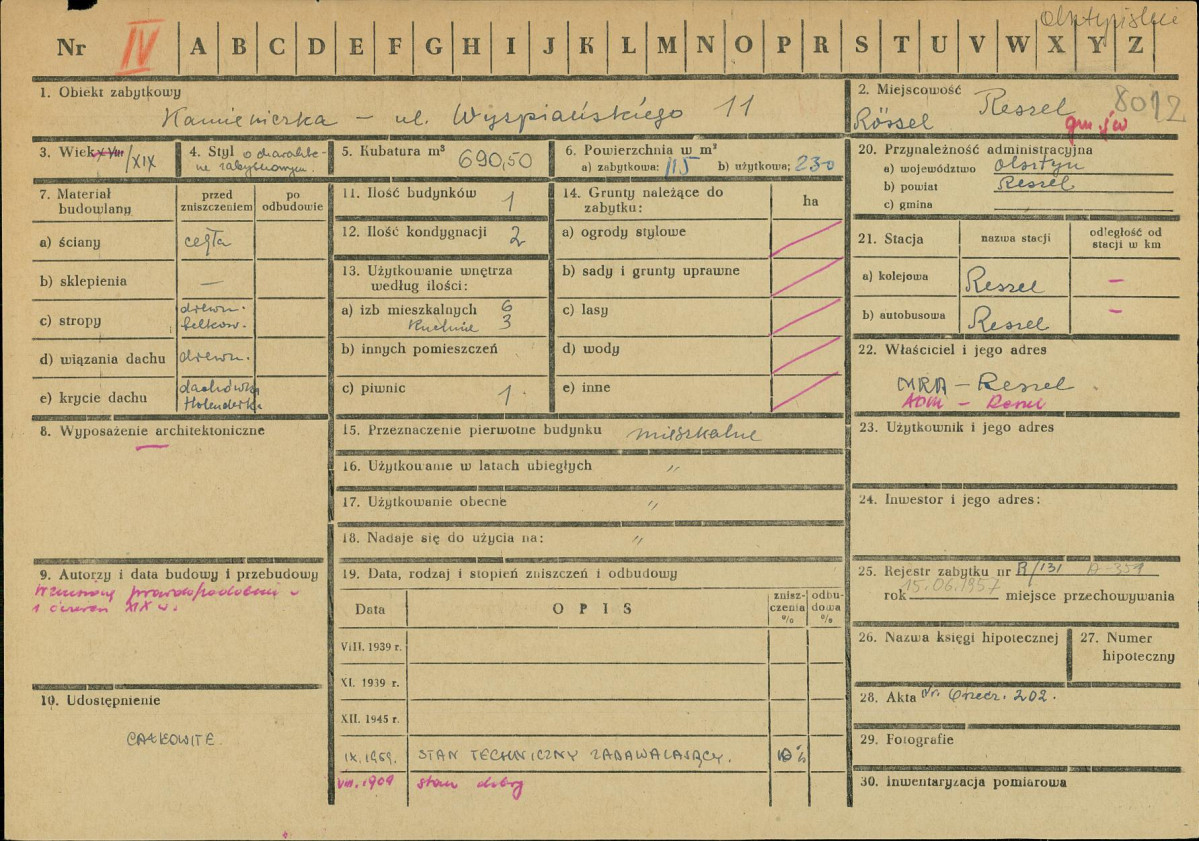 Nr IV A B C D E F G H I J K L M N O P R S T U V W X Y Z
1. Obiekt zabytkowy
Kamieniczka – ul. Wyspiańskiego 11
2. Miejscowość Reszel 8012
Rössel gm. jw
3. Wiek XVIII/XIX
4. Styl o charakte-
rze zabytkowym.
5. Kubatura m³ 690,50
6. Powierzchnia w m²
a) zabytkowa: 115 b) użytkowa: 230
7. Materiał budowlany
przed zniszczeniem
po odbudowie
a) ściany cegła
b) sklepienia —
c) stropy drewn. belkow.
d) wiązania dachu drewn.
e) krycie dachu dachówka Holenderka
8. Wyposażenie architektoniczne
—
9. Autorzy i data budowy i przebudowy
Wzniesiony prawdopodobnie w
XIX w.
10. Udostępnienie
CAŁKOWITE.
11. Ilość budynków 1
12. Ilość kondygnacji 2
13. Użytkowanie wnętrza
według ilości:
a) izb mieszkalnych 6
Kuchnie 3
b) innych pomieszczeń
c) piwnic 1.
14. Grunty należące do
zabytku:
ha
a) ogrody stylowe
b) sady i grunty uprawne
c) lasy
d) wody
e) inne
15. Przeznaczenie pierwotne budynku mieszkalne
16. Użytkowanie w latach ubiegłych "
17. Użytkowanie obecne "
18. Nadaje się do użycia na: "
19. Data, rodzaj i stopień zniszczeń i odbudowy
Data OPIS znisz-czenia % odbu-dowa %
VIII. 1939 r.
XI. 1939 r.
XII. 1945 r.
IX.1959. STAN TECHNICZNY ZADAWALAJĄCY. 10%
stan dobry
20. Przynależność administracyjna
a) województwo Olsztyn
b) powiat Reszel
c) gmina
21. Stacja nazwa stacji odległość od stacji w km
a) kolejowa Reszel —
b) autobusowa Reszel —
22. Właściciel i jego adres
MRN – Reszel
ADM – Reszel
23. Użytkownik i jego adres
24. Inwestor i jego adres:
25. Rejestr zabytku nr B/131 A-359
rok 15.06.1957 miejsce przechowywania
26. Nazwa księgi hipotecznej
27. Numer hipoteczny
28. Akta nr. 202.
29. Fotografie
30. Inwentaryzacja pomiarowa